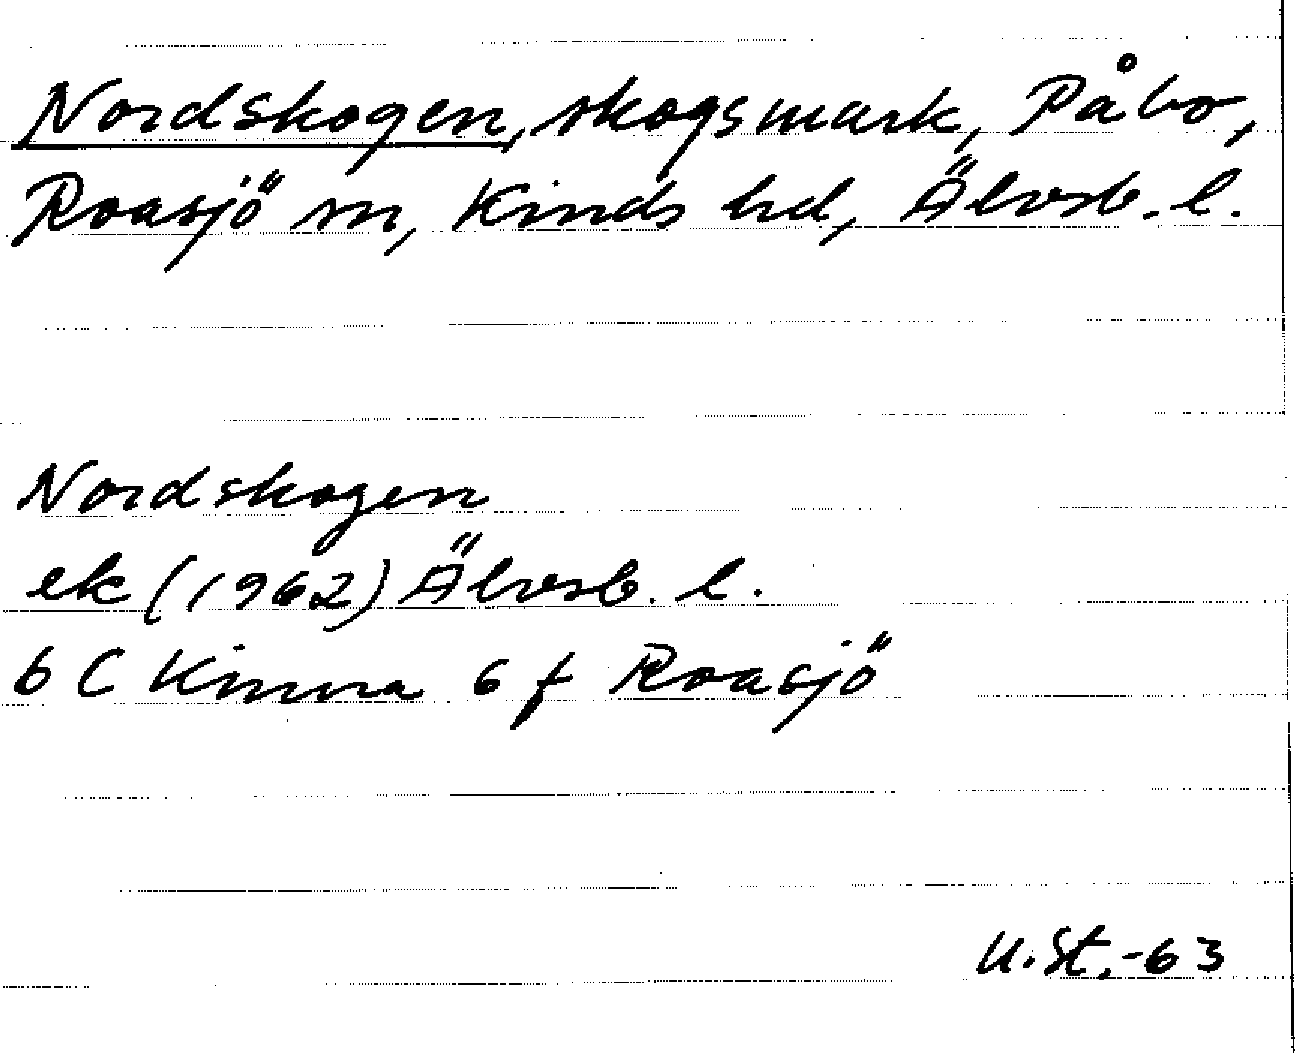 Nordskogen, skogsmark, Påbo,
Roasjö sn, Kinds hd, Älvsb. l.
Nordskogen
ek (1962) Älvsb. l.
6 C Kinna 6 f Roasjö
U. St. -63